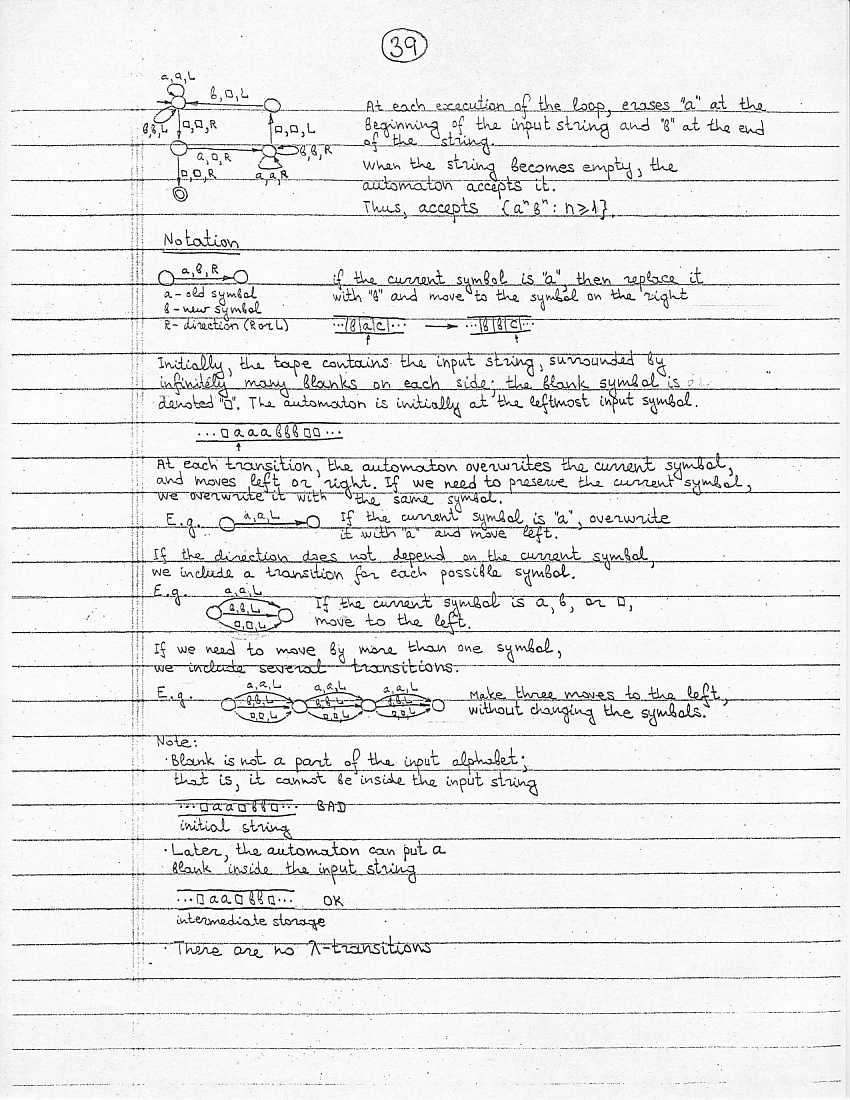 39
a,a,L
b,□,L
b,b,L
□,□,R
□,□,L
a,□,R
b,b,R
□,□,R
a,a,R
At each execution of the loop, erases "a" at the
beginning of the input string and "b" at the end
of the string.
When the string becomes empty, the
automaton accepts it.
Thus, accepts {aⁿbⁿ: n≥1}.
Notation
a,b,R
a - old symbol
b - new symbol
R - direction (R or L)
if the current symbol is "a", then replace it
with "b" and move to the symbol on the right
...|b|a|c|... → ...|b|b|c|...
Initially, the tape contains the input string, surrounded by
infinitely many blanks on each side; the blank symbol is
denoted "□". The automaton is initially at the leftmost input symbol.
...□aaabbb□□...
At each transition, the automaton overwrites the current symbol,
and moves left or right. If we need to preserve the current symbol,
we overwrite it with the same symbol.
E.g. a,a,L If the current symbol is "a", overwrite
it with "a" and move left.
If the direction does not depend on the current symbol,
we include a transition for each possible symbol.
E.g. a,a,L
b,b,L
□,□,L
If the current symbol is a, b, or □,
move to the left.
If we need to move by more than one symbol,
we include several transitions.
E.g. a,a,L a,a,L a,a,L
b,b,L b,b,L b,b,L
□,□,L □,□,L □,□,L
Make three moves to the left,
without changing the symbols.
Note:
· Blank is not a part of the input alphabet;
that is, it cannot be inside the input string
...□aa□bb□... BAD
initial string
· Later, the automaton can put a
blank inside the input string
...□aa□bb□... OK
intermediate storage
· There are no λ-transitions